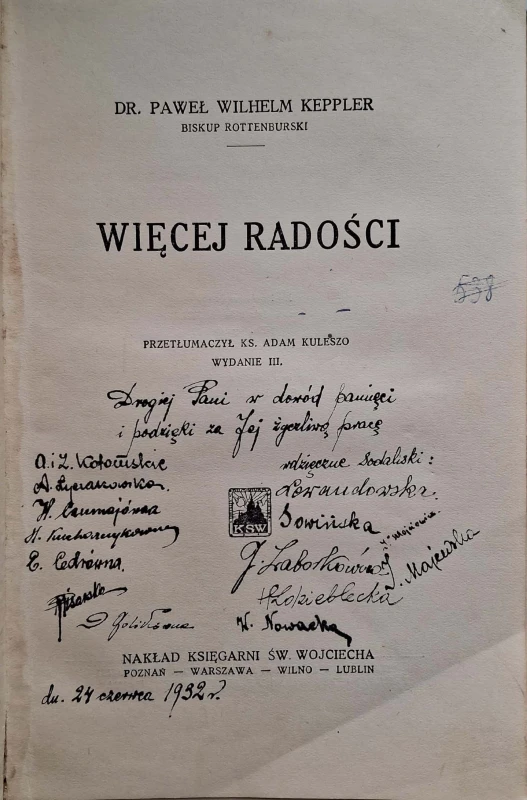 DR. PAWEŁ WILHELM KEPPLER
BISKUP ROTTENBURSKI
WIĘCEJ RADOŚCI
538
PRZETŁUMACZYŁ KS. ADAM KULESZO
WYDANIE III.
Drogiej Pani w dowód pamięci
i podzięki za Jej życzliwą pracę
wdzięczne Sodaliski:
A. i Z.
Lewandowska
W.
KSW
Sowińska
E. Cedrówna
J.
J. Majewska
W. Nowacka
NAKŁAD KSIĘGARNI ŚW. WOJCIECHA
POZNAŃ — WARSZAWA — WILNO — LUBLIN
dn. 24 czerwca 1932 r.